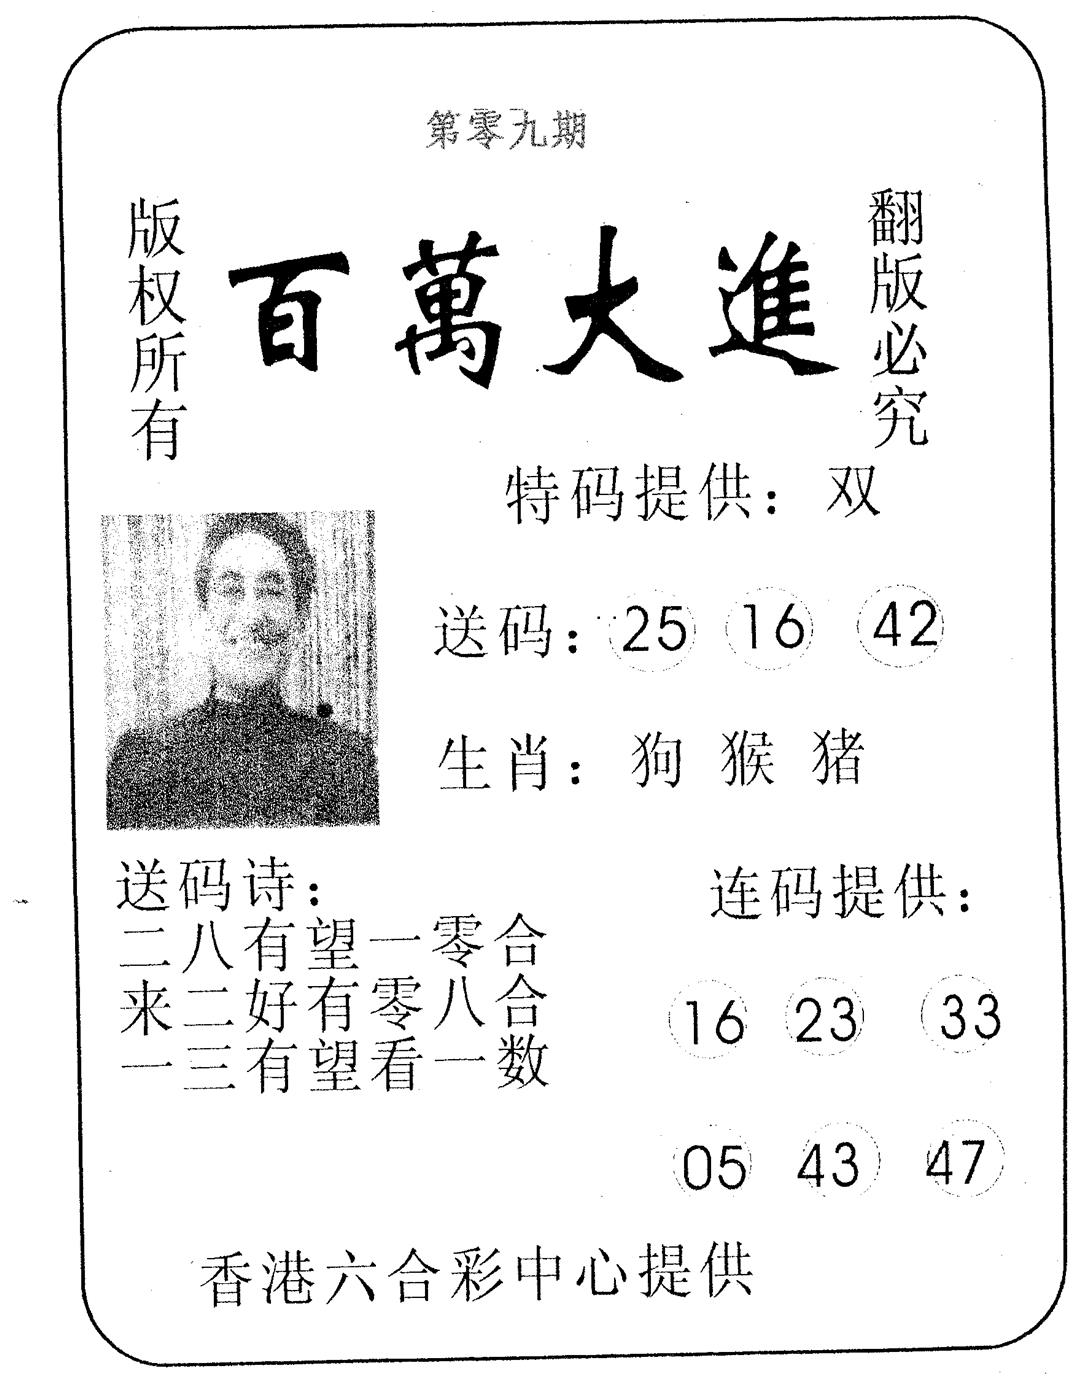 第零九期
版权所有
百萬大進
翻版必究
特码提供：双
送码：25 16 42
生肖：狗 猴 猪
送码诗：
二八有望一零合
来二好有零八合
一三有望看一数
连码提供：
16 23 33
05 43 47
香港六合彩中心提供